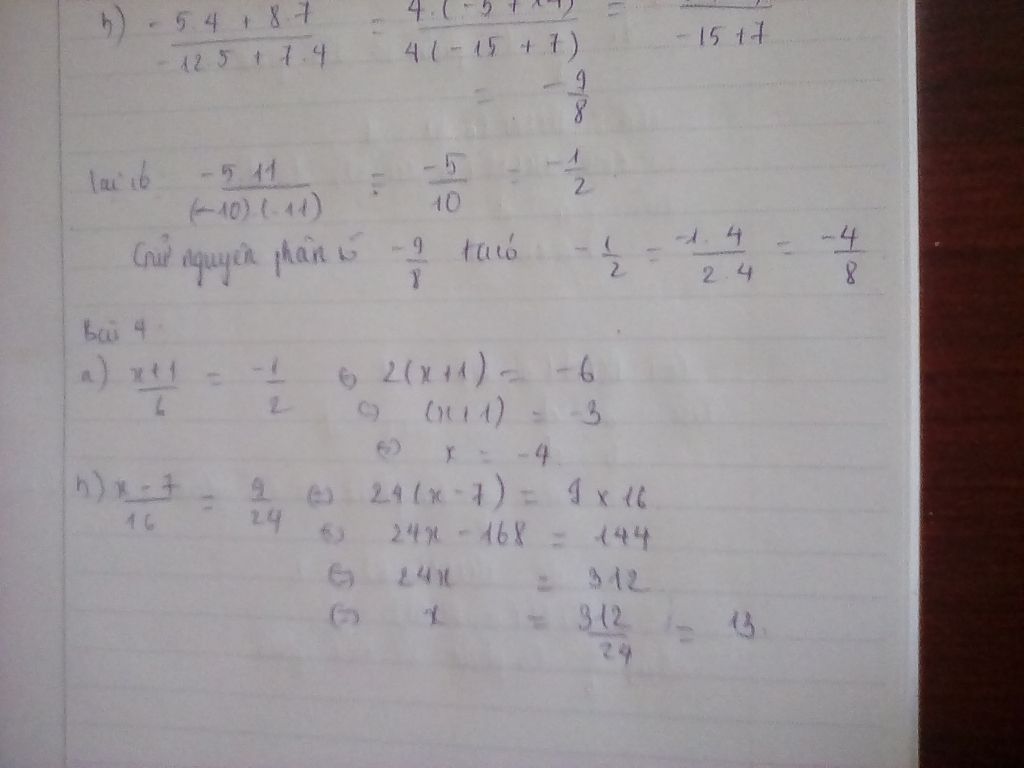 b) -5.4 + 8.7 / -12.5 + 7.4 = 4.(-5 + / 4(-15 + 7) = / -15+7
= -9/8
-5.11 / (-10).(-11) = -5/10 = -1/2
Giữ nguyên phân số -9/8 ta có -1/2 = -1.4 / 2.4 = -4/8
Bài 4
a) x+1/6 = -1/2 ⇔ 2(x+1) = -6
⇔ (x+1) = -3
⇔ x = -4
b) x-7/16 = 9/24 ⇔ 24(x-7) = 9 x 16
⇔ 24x - 168 = 144
⇔ 24x = 312
⇔ x = 312/24 = 13.